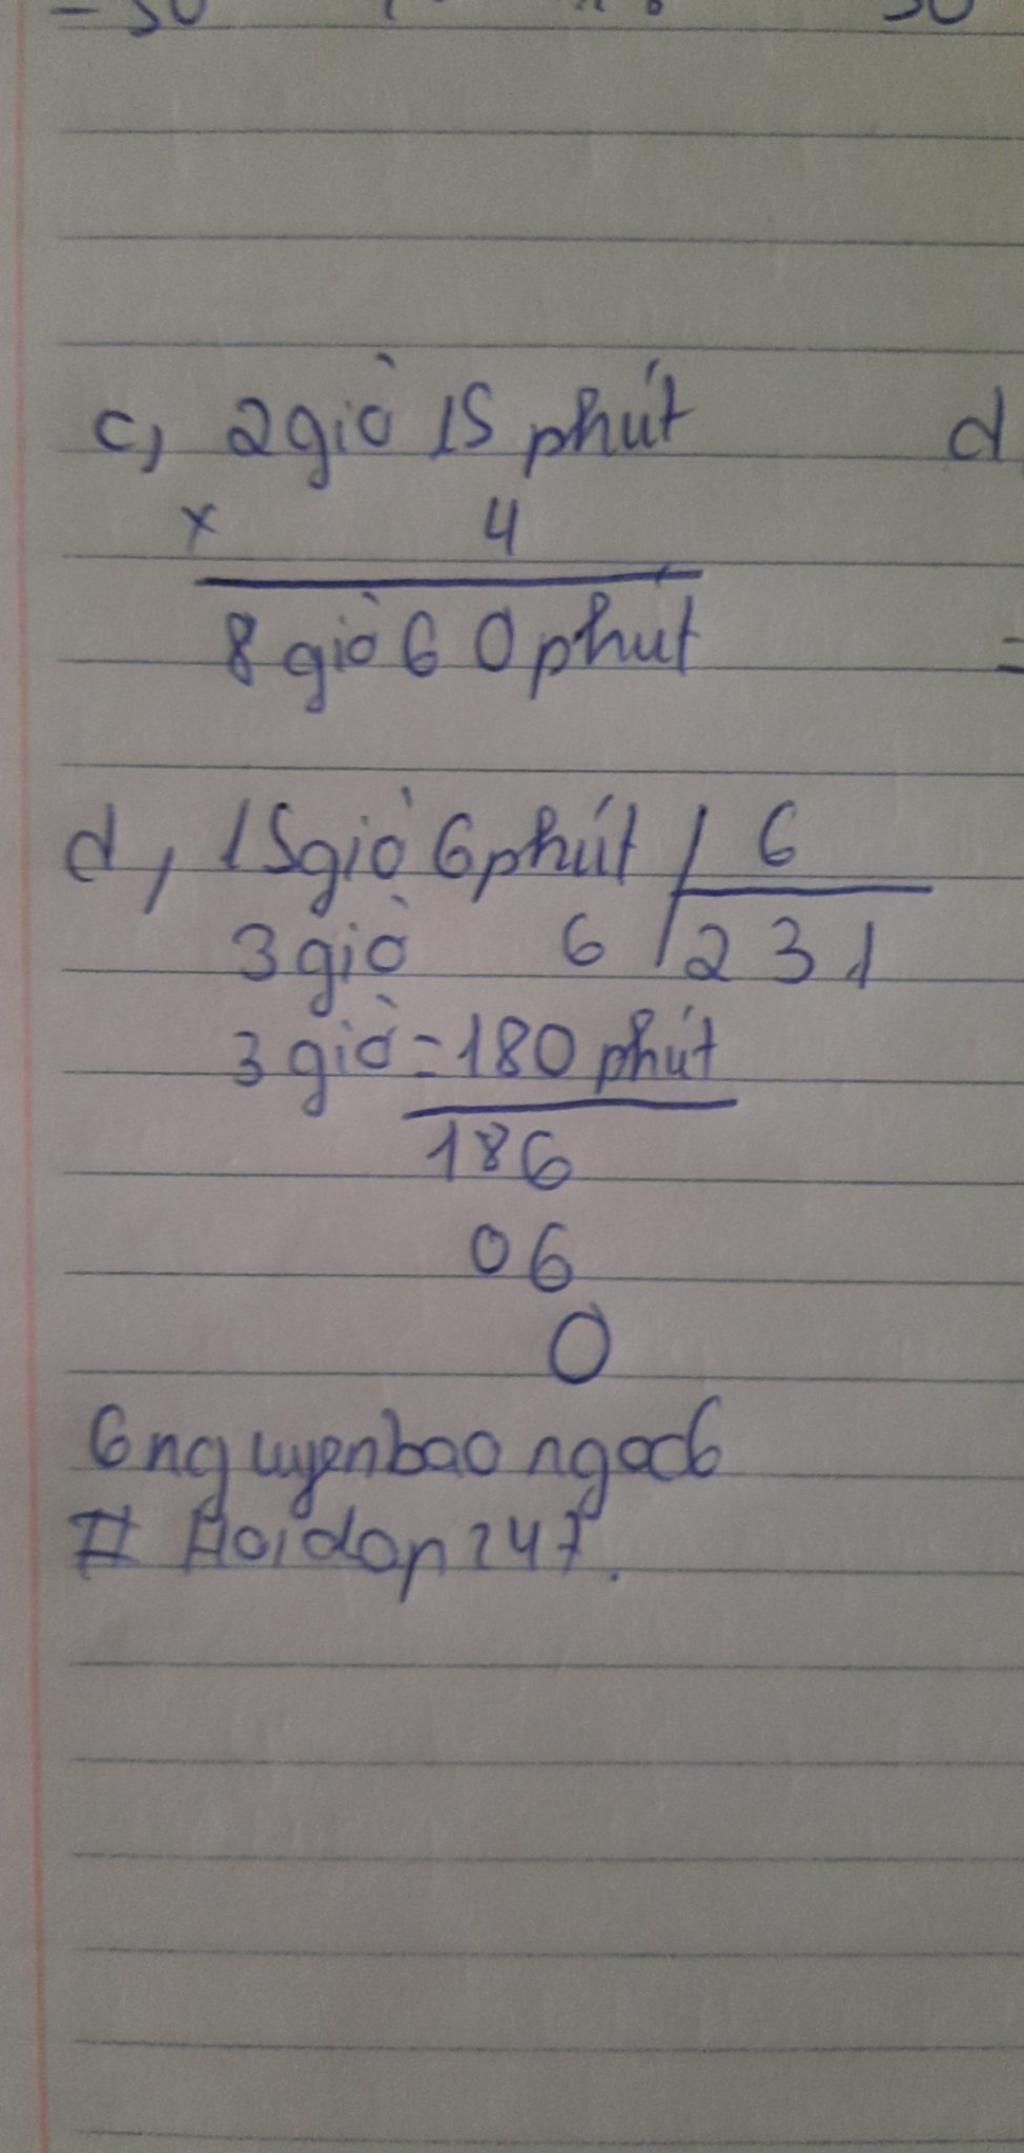 - 30 30
c, 2giờ 15 phút d
x 4
8 giờ 6 0 phút =
d, 15giờ 6phút 6
3giờ 6 2 3 1
3 giờ = 180 phút
186
06
0
6nguyenbaongoc6
# Hoidap247.